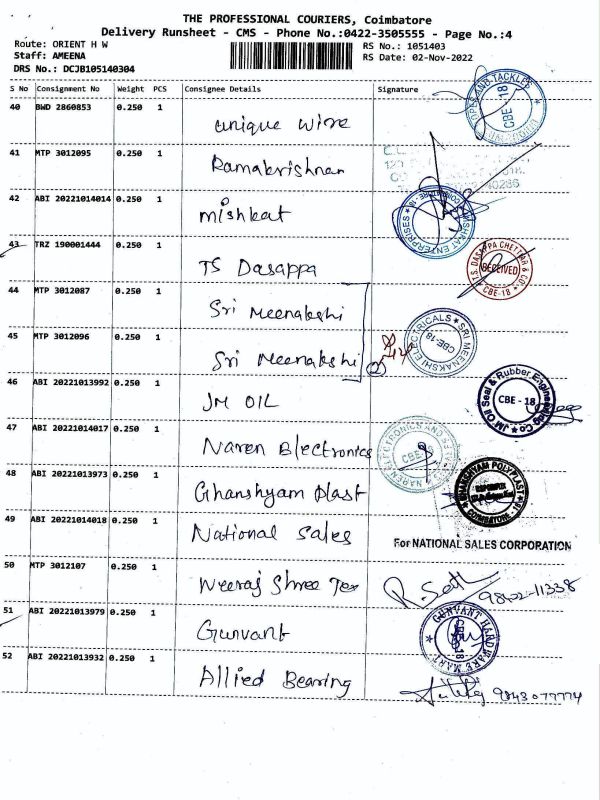 THE PROFESSIONAL COURIERS, Coimbatore
Delivery Runsheet - CMS - Phone No.:0422-3505555 - Page No.:4
Route: ORIENT H W
RS No.: 1051403
Staff: AMEENA
RS Date: 02-Nov-2022
DRS No.: DCJB105140304
S No Consignment No Weight PCS Consignee Details Signature
40 BWD 2860853 0.250 1
unique wire
CBE - 18
41 MTP 3012095 0.250 1
Ramakrishnan
42 ABI 20221014014 0.250 1
mishkat
43 TRZ 190001444 0.250 1
TS Dasappa
T.S. DASAPPA CHETTIAR & CO.
RECEIVED
CBE-18
44 MTP 3012087 0.250 1
Sri Meenakshi
SRI MEENAKSHI ELECTRICALS
CBE-18
45 MTP 3012096 0.250 1
Sri Meenakshi
46 ABI 20221013992 0.250 1
JM OIL
JM Oil Seal & Rubber Engineering Co
CBE - 18
47 ABI 20221014017 0.250 1
Naren Electronics
NAREN ELECTRONICS AND
CBE-18
48 ABI 20221013973 0.250 1
Ghanshyam Plast
GHANSHYAM POLYPLAST
COIMBATORE - 18
49 ABI 20221014018 0.250 1
National Sales
For NATIONAL SALES CORPORATION
50 MTP 3012107 0.250 1
Neeraj Shree Tex
98422-11338
51 ABI 20221013979 0.250 1
Gunvant
GUNVANT HARDWARE MART
52 ABI 20221013932 0.250 1
Allied Bearing
9843077774